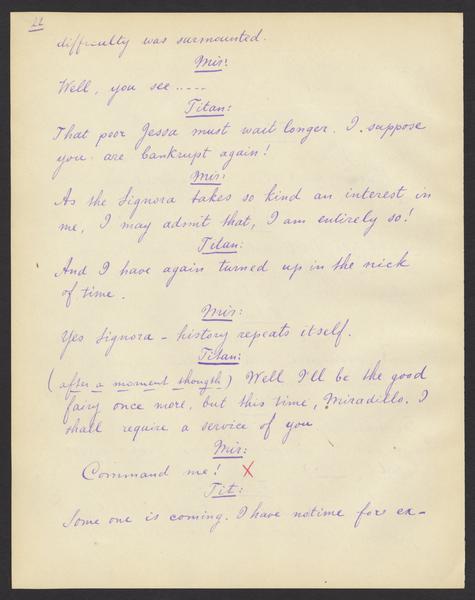 22
difficulty was surmounted.
Mir:
Well, you see .....
Titan:
That poor Jessa must wait longer. I suppose
you are bankrupt again!
Mir:
As the Signora takes so kind an interest in
me, I may admit that, I am entirely so!
Titan:
And I have again turned up in the nick
of time.
Mir:
Yes Signora - history repeats itself.
Titan:
(after a moment though) Well I'll be the good
fairy once more, but this time, Miradillo, I
shall require a service of you
Mir:
Command me! X
Tit:
Some one is coming. I have notime fors ex-